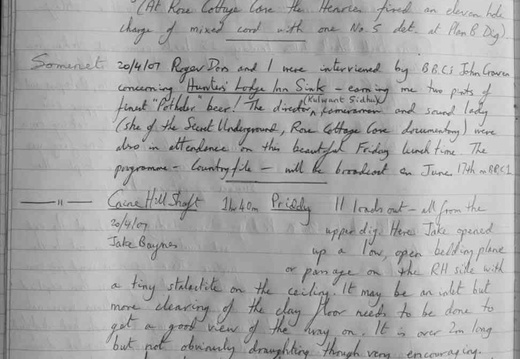 (At Rose Cottage Cave the Henries fired an eleven hole
charge of mixed cord with one No. 5 det. at Plan B Dig)
Somerset 20/4/07 Roger Dors and I were interviewed by BBC's John Craven
concerning Hunters' Lodge Inn Sink - earning me two pints of
finest "Potholer" beer! The director (Kulwant Sidhu), cameraman and sound lady
(she of the Secret Underground, Rose Cottage Cave documentary) were
also in attendance on this beautiful Friday lunch time. The
programme - Countryfile - will be broadcast on June 17th on BBC1
— " — Caine Hill Shaft 1hr 40m Priddy 11 loads out - all from the
20/4/07 upper dig. Here Jake opened
Jake Baynes up a low, open bedding plane
or passage on the RH side with
a tiny stalactite on the ceiling. It may be an inlet but
more clearing of the clay floor needs to be done to
get a good view of the way on. It is over 2m long
but not obviously draughting though very encouraging.